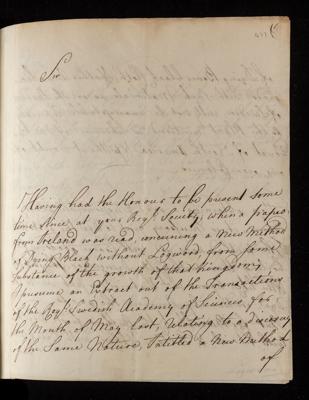 Sir
Having had the Honour to be present some
time Since at your Roy.l Society, when a paper
from Ireland was read, concerning a New Method
of Dying Black without Logwood from some
Substance of the growth of that Kingdom;
I presume an Extract out of the Transactions
of the Roy.l Swedish Academy of Sciences, for
the Month of May last, relating to a discovery
of the Same Nature, Intitled a New Method
of